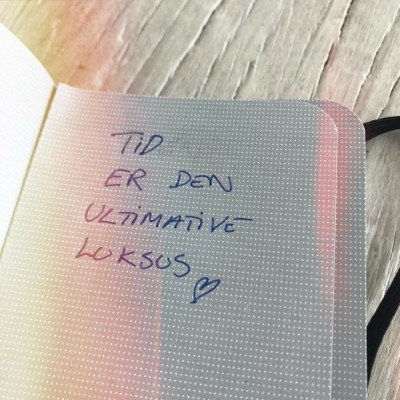 TID
ER DEN
ULTIMATIVE
LUKSUS